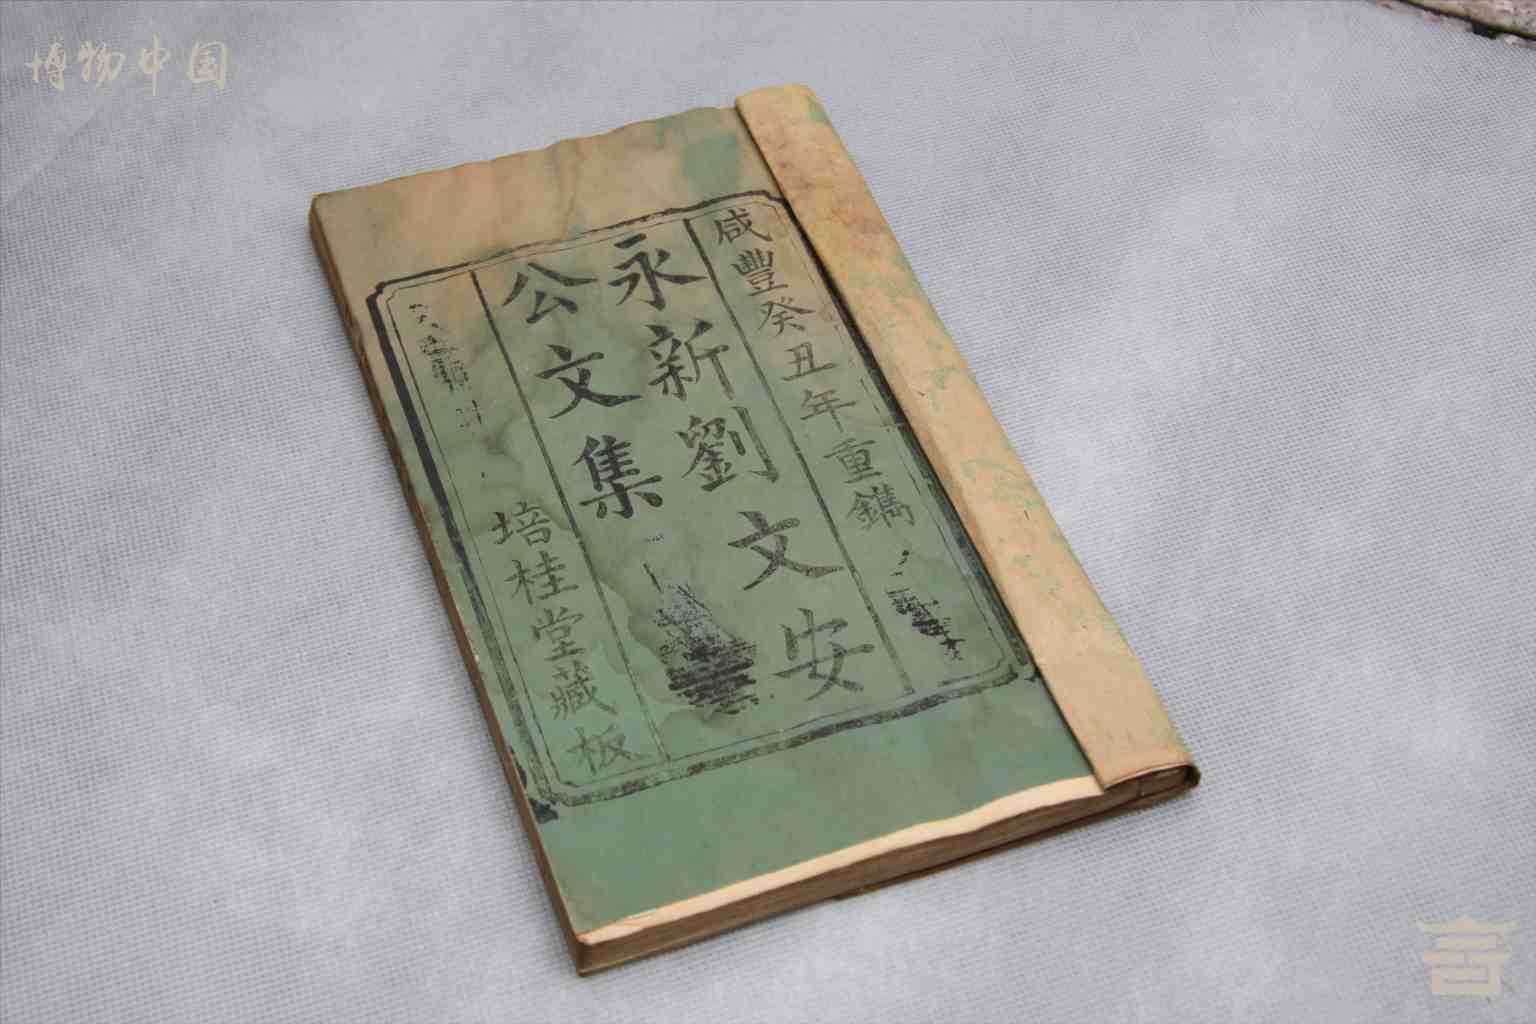 博物中国
咸豐癸丑年重鐫
永新劉文安
公文集
培桂堂藏板